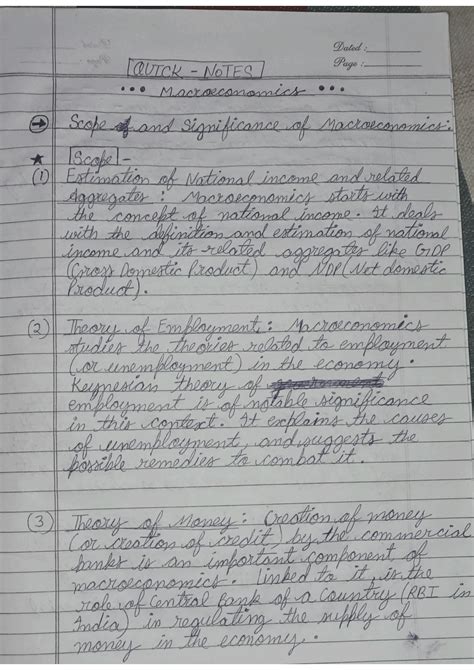 Dated :
Page :
QUICK - NOTES
••• Macroeconomics •••
→ Scope and Significance of Macroeconomics:
★ Scope -
(1) Estimation of National income and related
Aggregates : Macroeconomics starts with
the concept of national income. It deals
with the definition and estimation of national
income and its related aggregates like GDP
(Gross Domestic Product) and NDP (Net domestic
Product).
(2) Theory of Employment : Macroeconomics
studies the theories related to employment
(or unemployment) in the economy.
Keynesian theory of
employment is of notable significance
in this context. It explains the causes
of unemployment, and suggests the
possible remedies to combat it.
(3) Theory of Money : Creation of money
(or creation of credit) by the commercial
banks is an important component of
macroeconomics. Linked to it, is the
role of Central Bank of a Country (RBI in
India) in regulating the supply of
money in the economy.